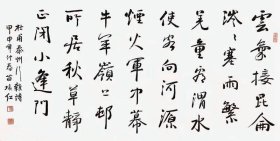 雲氣接昆侖
涔涔塞雨繁
羌童看渭水
使客向河源
煙火軍中幕
牛羊嶺上邨
所居秋草靜
正閉小蓬門
杜甫秦州雜詩
甲申
苗培红